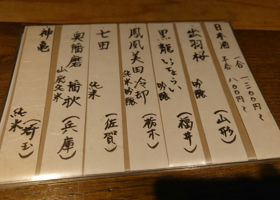 日本酒 一合 一二〇〇円〜
五勺 八〇〇円〜
出羽桜 吟醸 (山形)
黒龍 いっちょらい 吟醸 (福井)
鳳凰美田 冷卸 純米吟醸 (栃木)
七田 純米 (佐賀)
奥播磨 播秋 山廃純米 (兵庫)
神亀 純米 (埼玉)